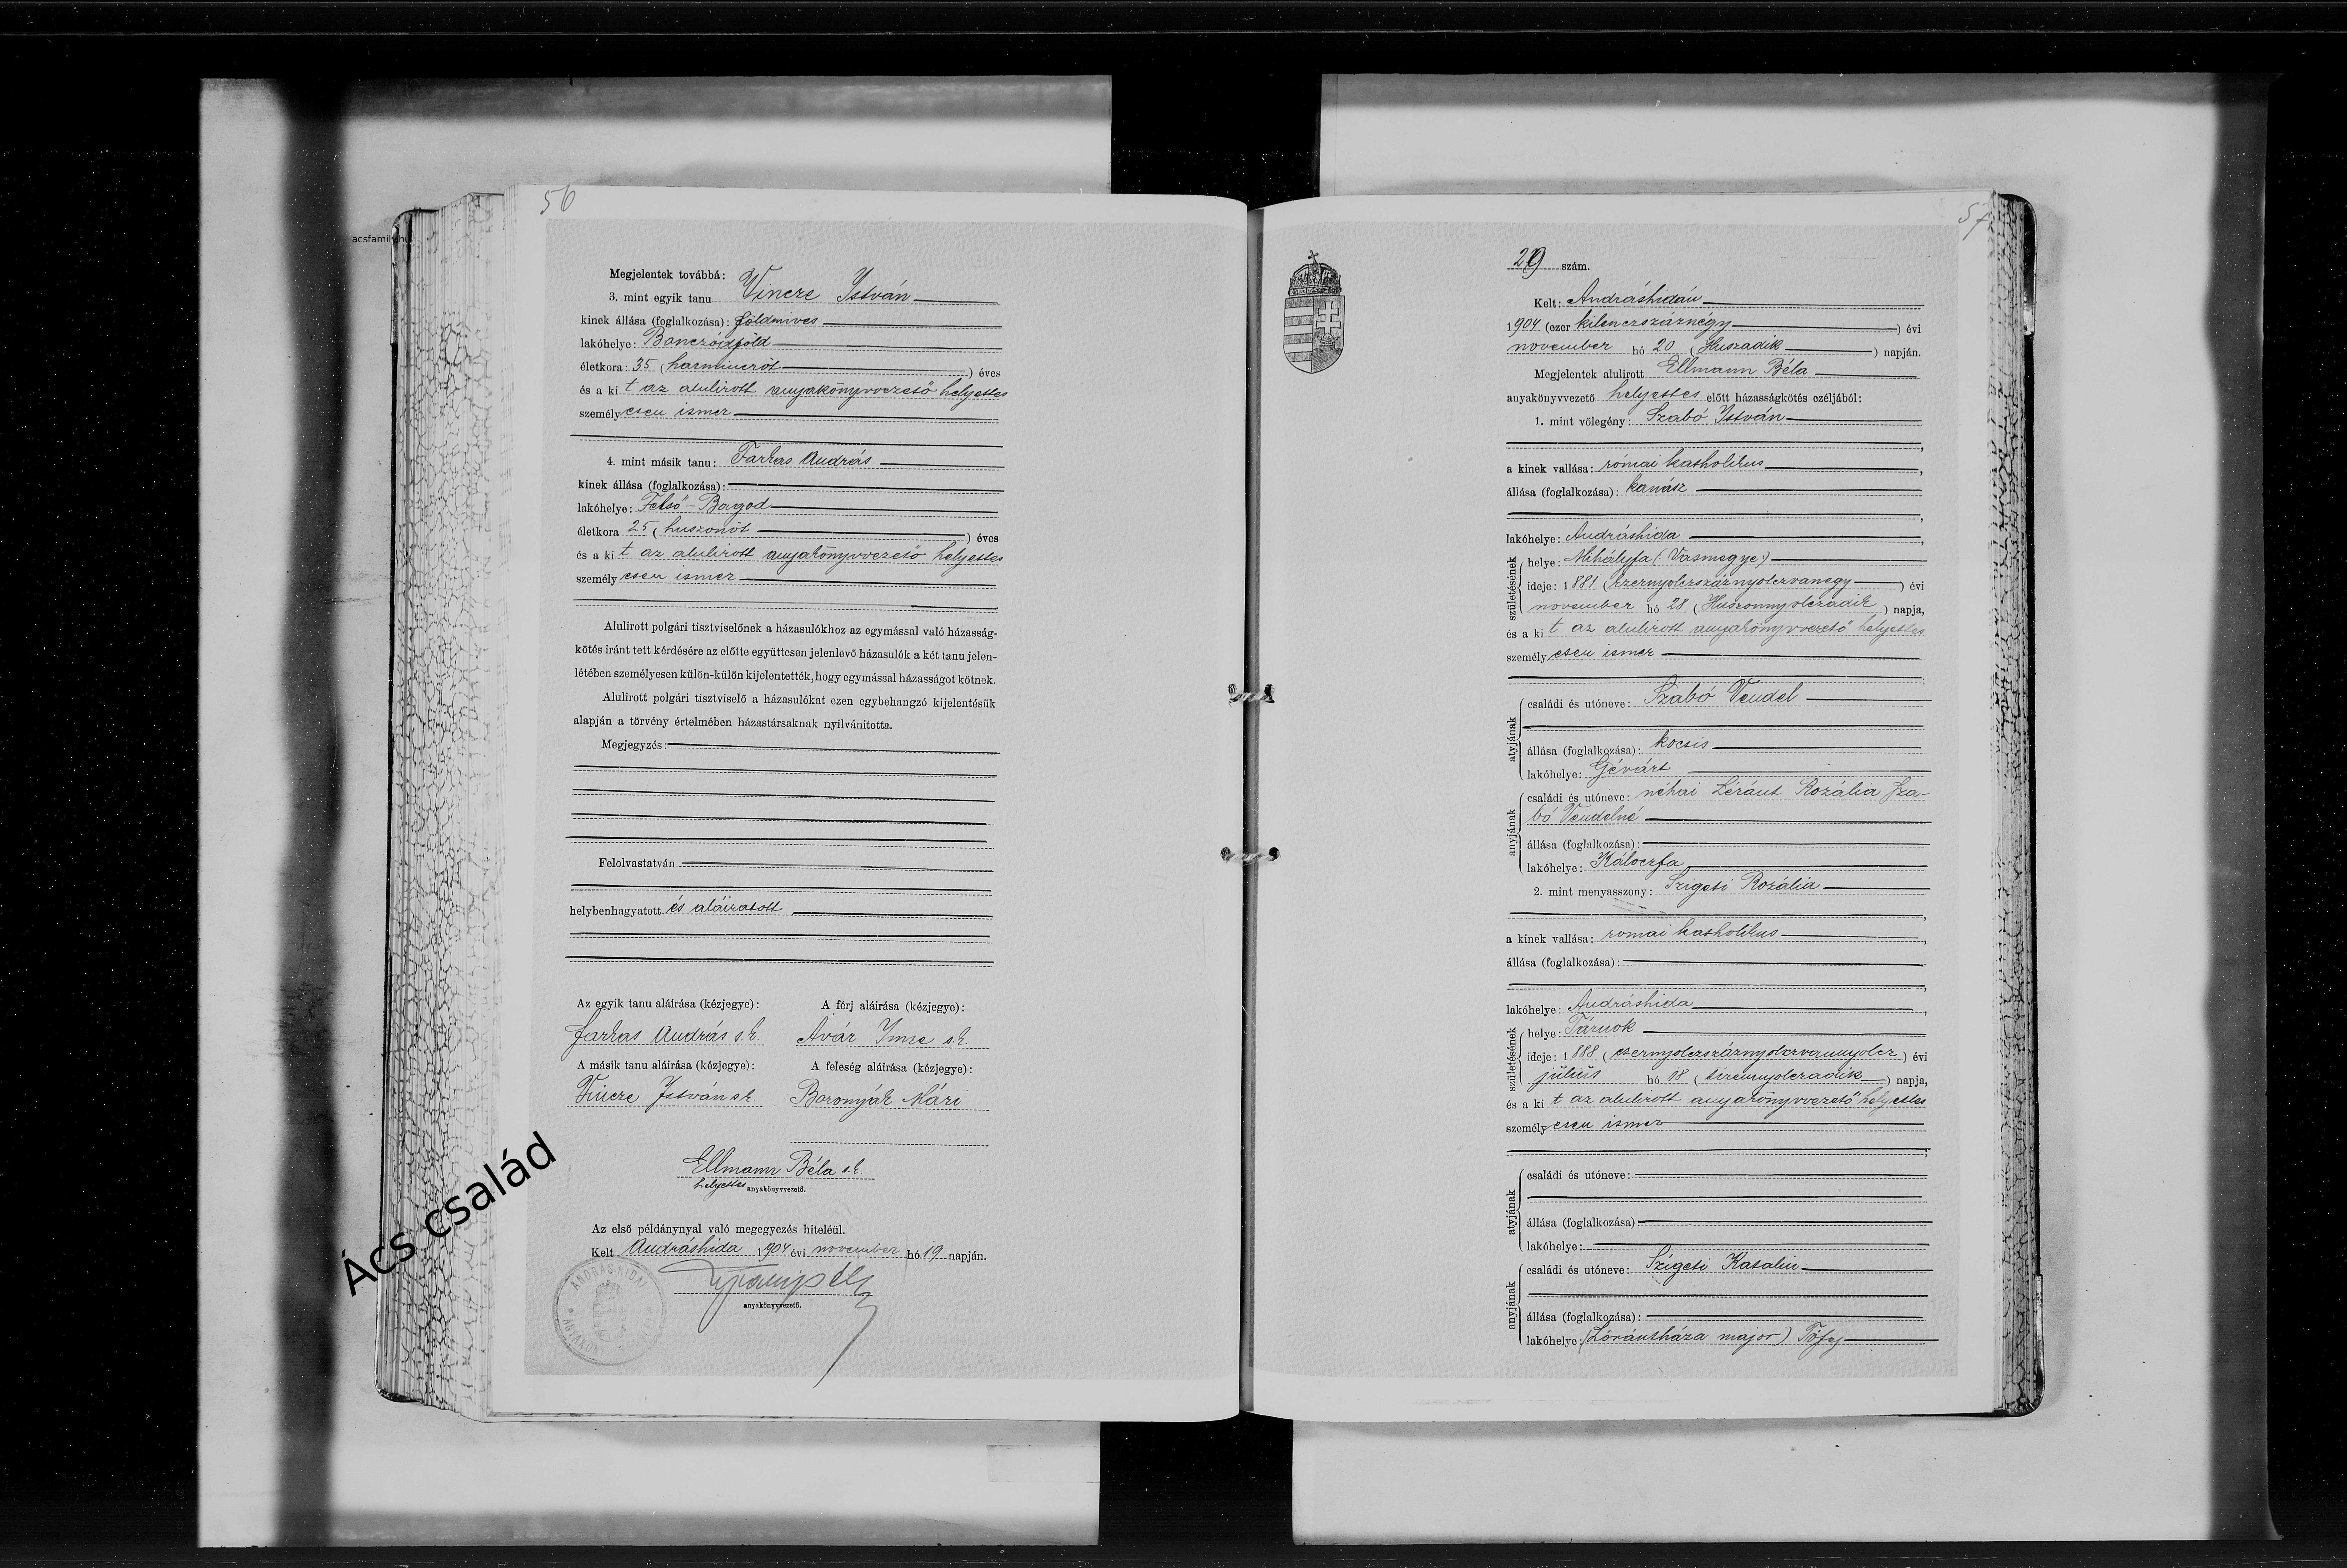 56
acsfamily.hu
Megjelentek továbbá:
3. mint egyik tanu Vincze István
kinek állása (foglalkozása): földmives
lakóhelye: Bonczódföld
életkora: 35 (harminczöt) éves
és a ki t az alulirott anyakönyvvezető helyettes
személyesen ismer
4. mint másik tanu: Farkas András
kinek állása (foglalkozása):
lakóhelye: Felső-Bagod
életkora 25 (huszonöt) éves
és a ki t az alulirott anyakönyvvezető helyettes
személyesen ismer
Alulirott polgári tisztviselőnek a házasulókhoz az egymással való házasság-
kötés iránt tett kérdésére az előtte együttesen jelenlevő házasulók a két tanu jelen-
létében személyesen külön-külön kijelentették, hogy egymással házasságot kötnek.
Alulirott polgári tisztviselő a házasulókat ezen egybehangzó kijelentésük
alapján a törvény értelmében házastársaknak nyilvánitotta.
Megjegyzés:
Felolvastatván
helybenhagyatott és aláiratott
Az egyik tanu aláírása (kézjegye): A férj aláirása (kézjegye):
Farkas András s.k. Avár Imre s.k.
A másik tanu aláirása (kézjegye): A feleség aláirása (kézjegye):
Vincze István s.k. Boronyák Mári
Ellmann Béla s.k.
helyettes anyakönyvvezető.
Az első példánynyal való megegyezés hiteléül.
Kelt Andráshida 1904 évi november hó 19 napján.
anyakönyvvezető.
ANDRÁSHIDAI
Ács család
57
29 szám.
Kelt: Andráshidán
1904 (ezer kilenczszáznégy) évi
november hó 20 (Huszadik) napján.
Megjelentek alulirott Ellmann Béla
anyakönyvvezető helyettes előtt házasságkötés czéljából:
1. mint vőlegény: Szabó István
a kinek vallása: római katholikus
állása (foglalkozása): kanász
lakóhelye: Andráshida
születésének
helye: Mihályfa (Vasmegye)
ideje: 1881 (ezernyolczszáznyolczvanegy) évi
november hó 28 (Huszonnyolczadik) napja,
és a ki t az alulirott anyakönyvvezető helyettes
személyesen ismer
atyjának
családi és utóneve: Szabó Vendel
állása (foglalkozása): kocsis
lakóhelye: Gévárt
anyjának
családi és utóneve: néhai Léránt Rozália Sza-
bó Vendelné
állása (foglalkozása):
lakóhelye: Káloczfa
2. mint menyasszony: Szigeti Rozália
a kinek vallása: romai katholikus
állása (foglalkozása):
lakóhelye: Andráshida
születésének
helye: Tárnok
ideje: 1888 (ezernyolczszáznyolczvannyolcz) évi
július hó 18 (tizennyolczadik) napja,
és a ki t az alulirott anyakönyvvezető helyettes
személyesen ismer
atyjának
családi és utóneve:
állása (foglalkozása)
lakóhelye:
anyjának
családi és utóneve: Szigeti Katalin
állása (foglalkozása):
lakóhelye: (Lórántháza major) Tófej